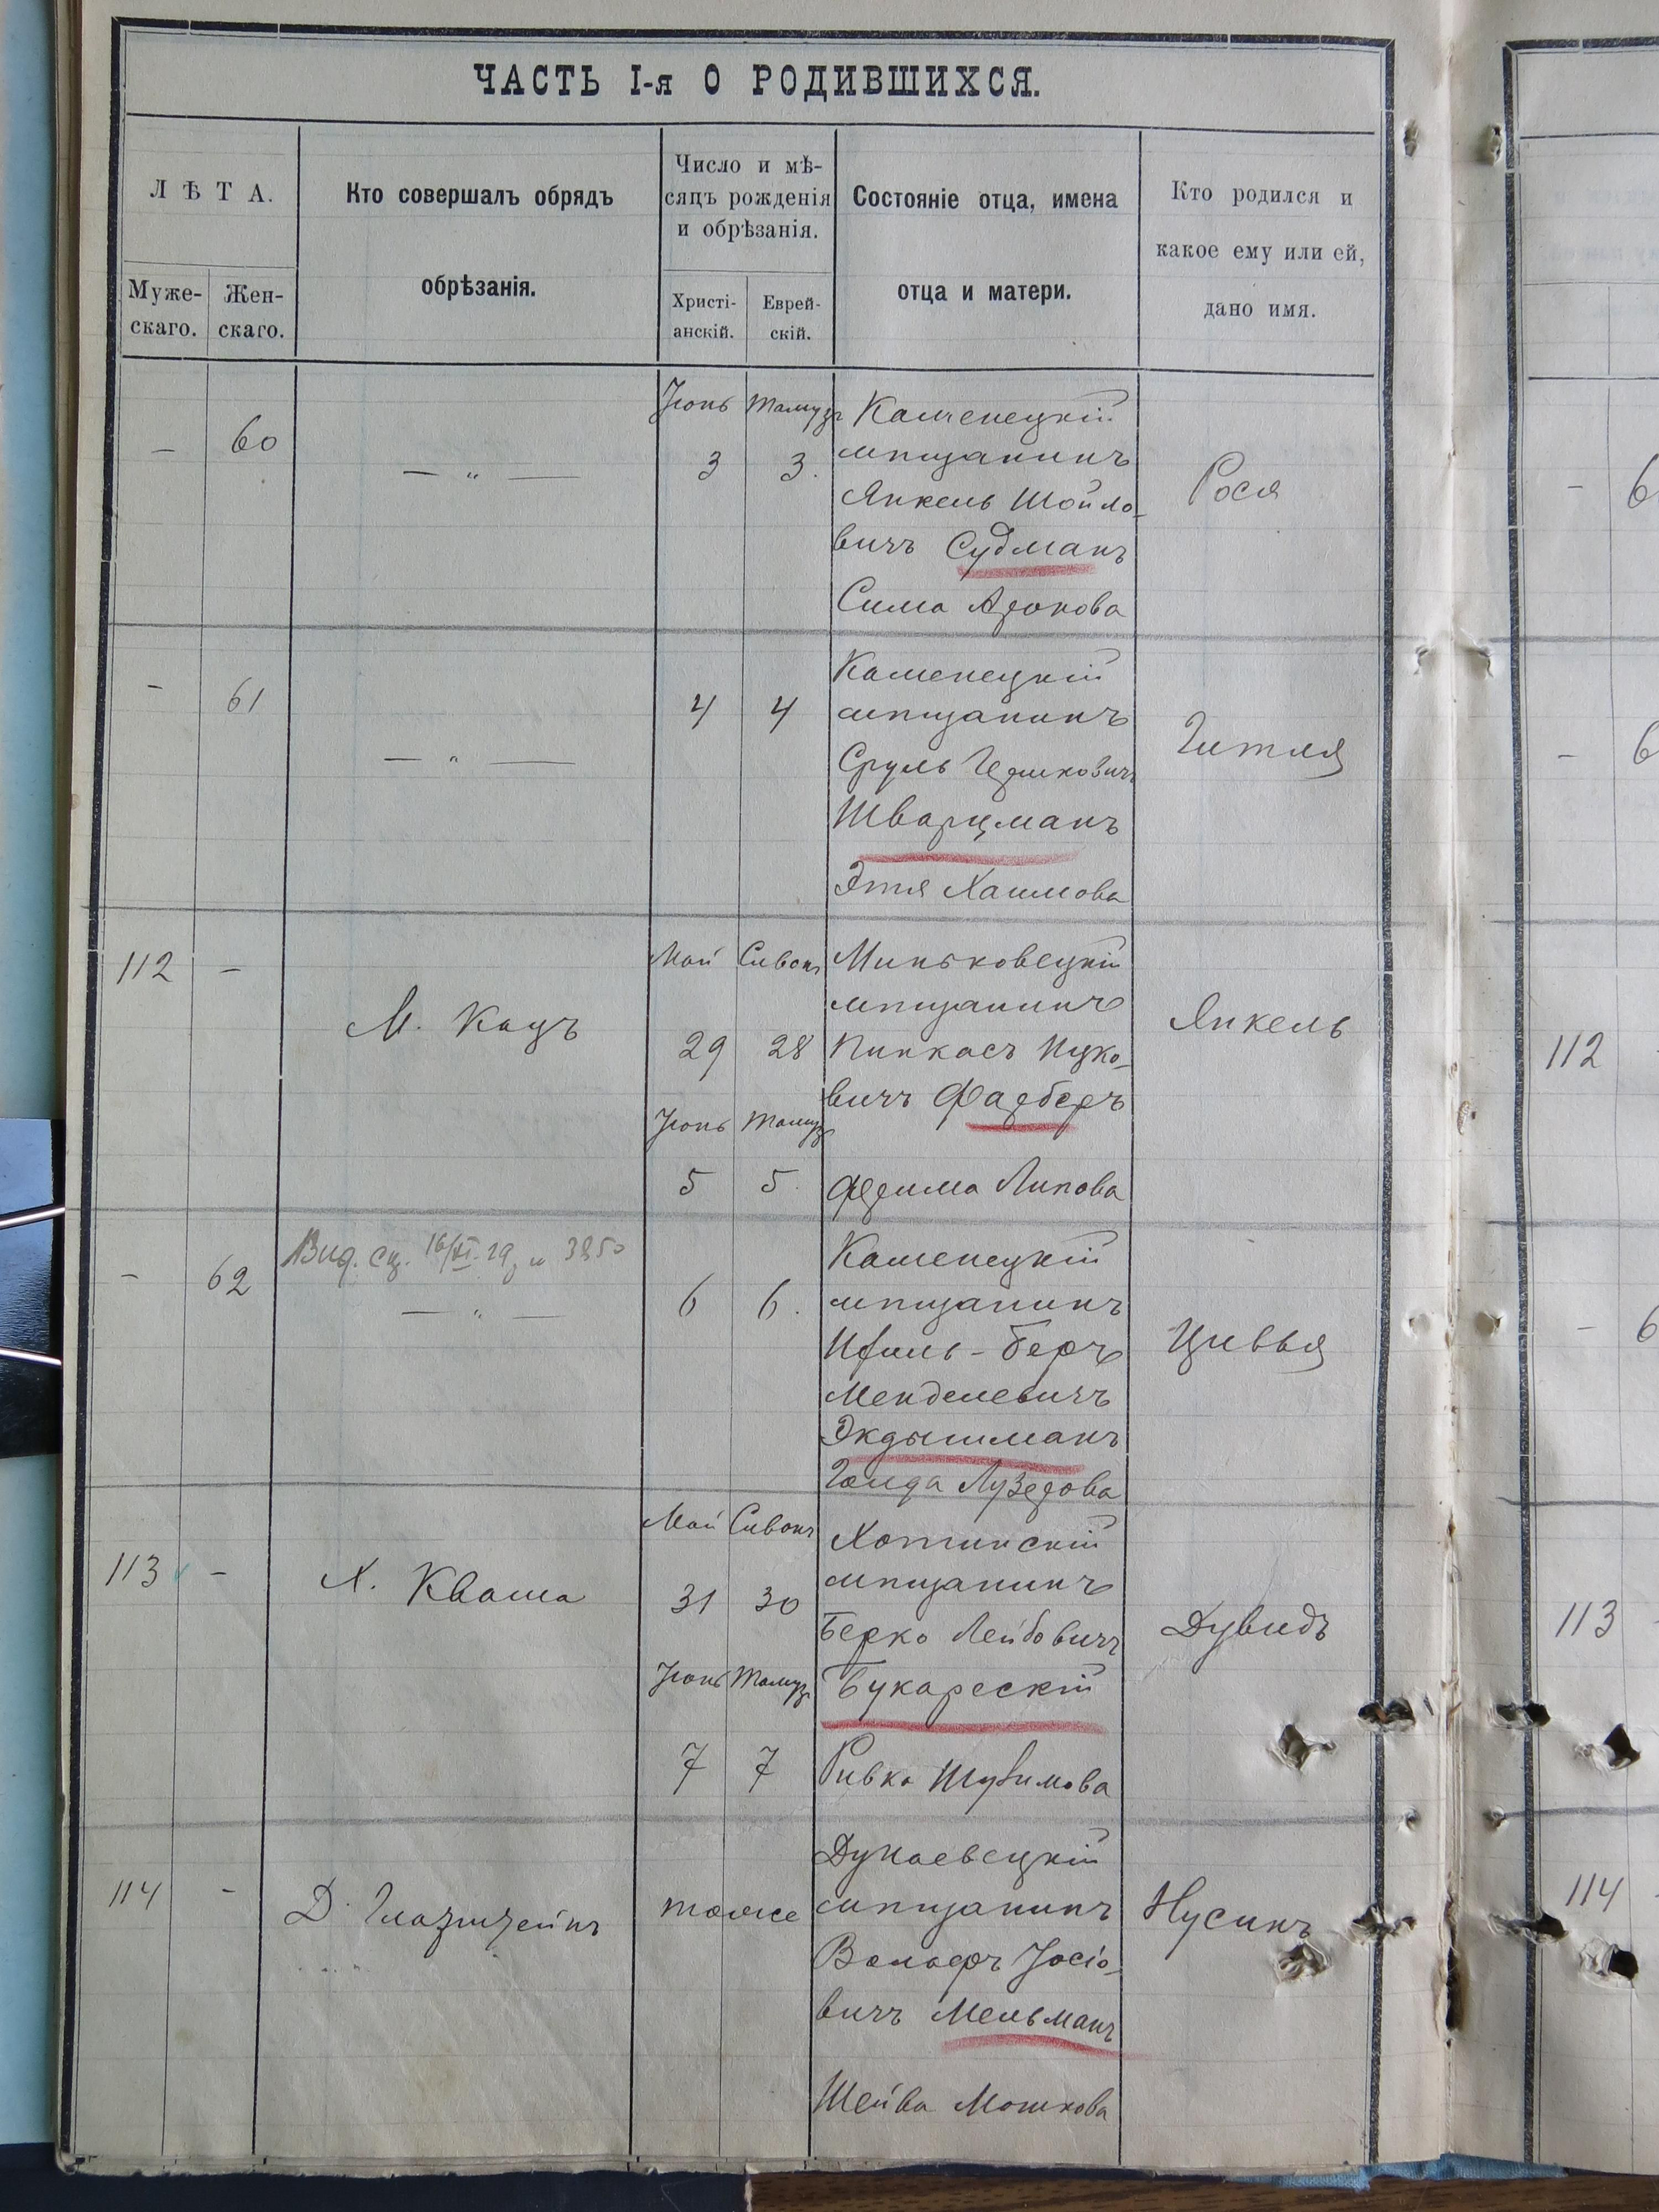 ЧАСТЬ I-я О РОДИВШИХСЯ.
ЛѢТА.
Муже-
скаго.
Жен-
скаго.
Кто совершалъ обрядъ
обрѣзанія.
Число и мѣ-
сяцъ рожденія
и обрѣзанія.
Христі-
анскій.
Еврей-
скій.
Состояніе отца, имена
отца и матери.
Кто родился и
какое ему или ей,
дано имя.
– 60
— " —
Іюнь Тамузъ
3 3.
Каменецкій
мѣщанинъ
Янкель Шойло-
вичъ Судманъ
Сима Аронова
Рося
– 61
— " —
4 4
Каменецкій
мѣщанинъ
Сруль Гершковичъ
Шварцманъ
Этля Хаимова
Гитля
112 –
М. Кацъ
Май Сивонъ
29 28
Іюнь Тамузъ
5 5.
Миньковецкій
мѣщанинъ
Пинкасъ Ицко-
вичъ Фарберъ
Фрима Липова
Янкель
– 62
Вид. 16/XI. 3850
— " —
6 6.
Каменецкій
мѣщанинъ
Ихиль-Беръ
Менделевичъ
Экдышманъ
Голда Лузерова
Цивья
113 –
Х. Кваша
Май Сивонъ
31 30
Іюнь Тамузъ
7 7
Хотинскій
мѣщанинъ
Берко Лейбовичъ
Букарескій
Ривка
Дувидъ
114 –
Д. Глазштейнъ
тоже
Дунаевецкій
мѣщанинъ
Вольфъ Іосіо-
вичъ Мельманъ
Шейва Мошкова
Нусинъ
– 6
– 6
112
– 6
113 –
114 –